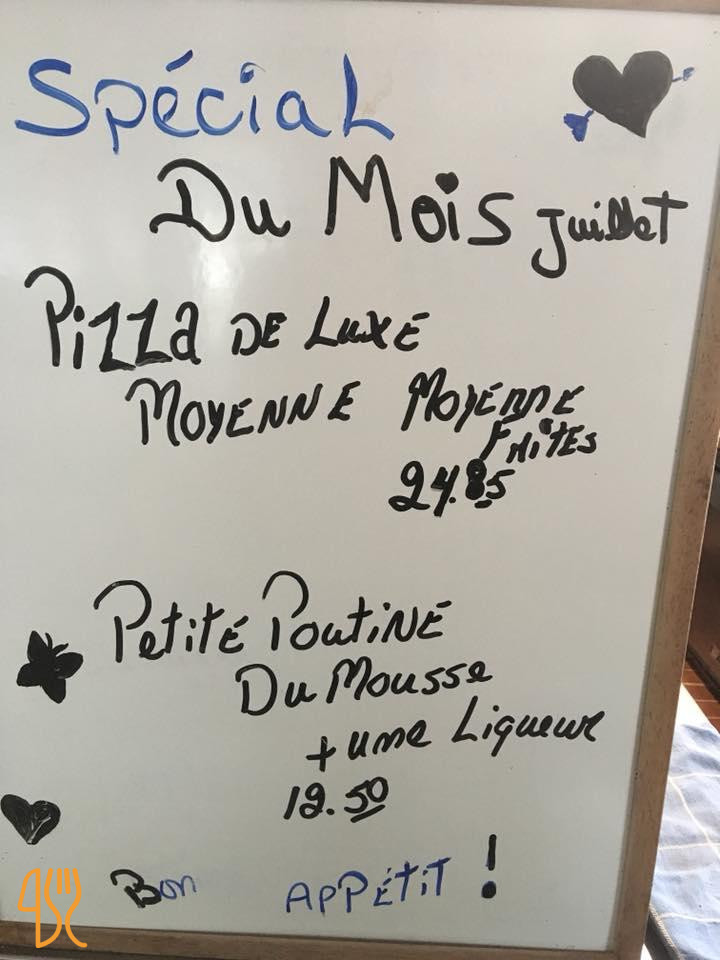 Spécial
Du Mois juillet
Pizza DE LUXE
MOYENNE MOYENNE
FRITES
24.85
Petite Poutine
Du Mousse
+ une Liqueur
12.50
Bon APPÉTIT !